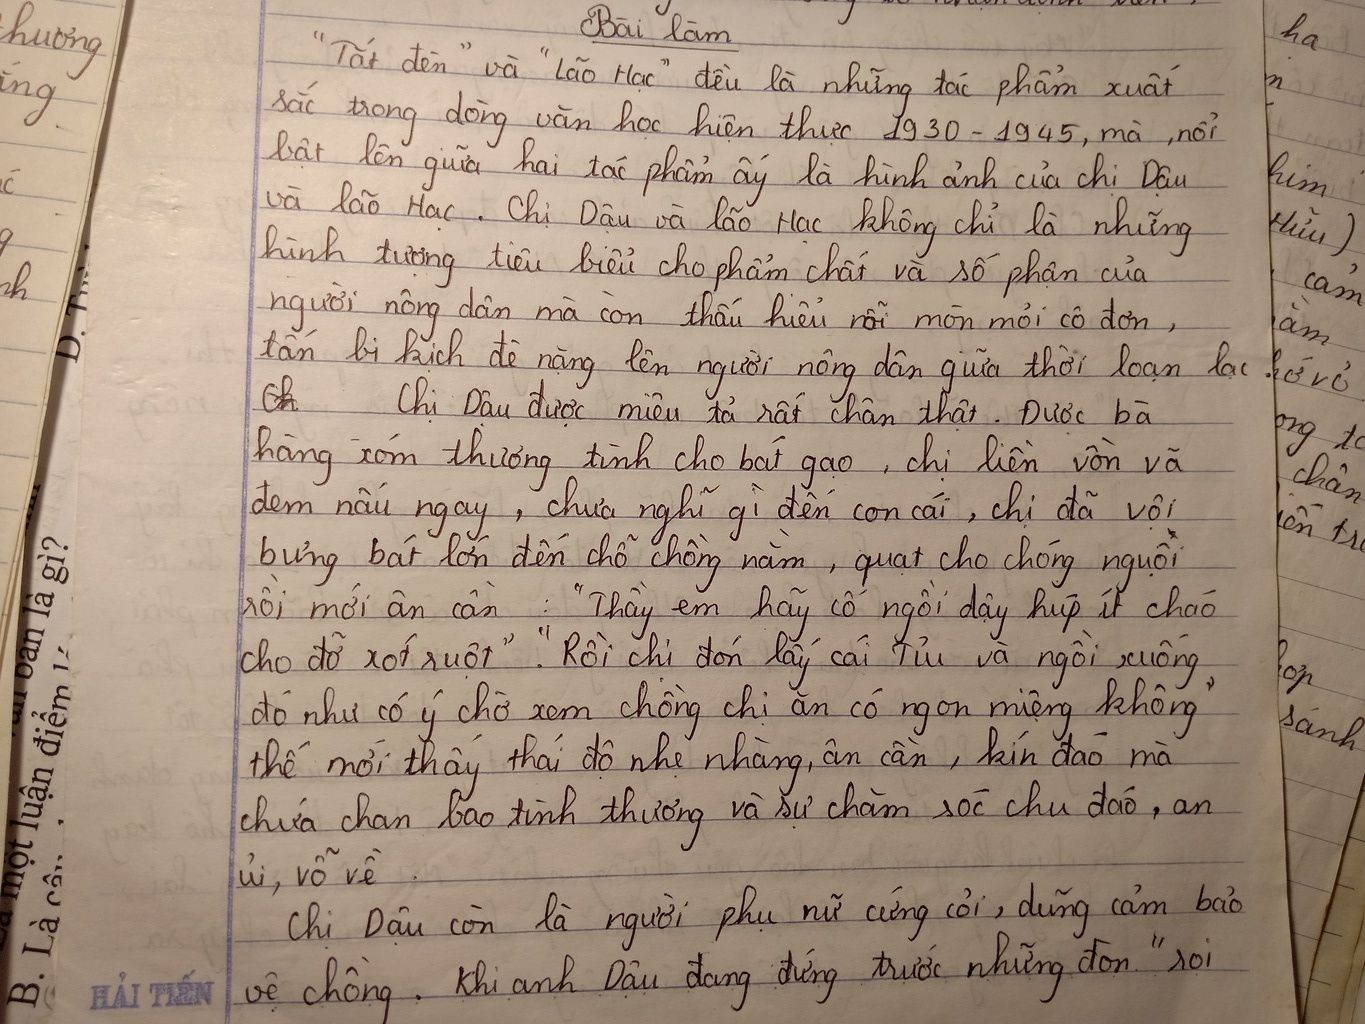 Bài làm
"Tắt đèn" và "Lão Hạc" đều là những tác phẩm xuất
sắc trong dòng văn học hiện thực 1930 - 1945, mà nổi
bật lên giữa hai tác phẩm ấy là hình ảnh của chị Dậu
và lão Hạc. Chị Dậu và lão Hạc không chỉ là những
hình tượng tiêu biểu cho phẩm chất và số phận của
người nông dân mà còn thấu hiểu nỗi mòn mỏi cô đơn,
tấn bi kịch đè nặng lên người nông dân giữa thời loạn lạc
Chị Dậu được miêu tả rất chân thật. Được bà
hàng xóm thương tình cho bát gạo, chị liền vồn vã
đem nấu ngay, chưa nghĩ gì đến con cái, chị đã vội
bưng bát lớn đến chỗ chồng nằm, quạt cho chóng nguội
rồi mới ân cần : "Thầy em hãy cố ngồi dậy húp ít cháo
cho đỡ xót ruột". "Rồi chị đón lấy cái Tỉu và ngồi xuống
đó như có ý chờ xem chồng chị ăn có ngon miệng không"
thế mới thấy thái độ nhẹ nhàng, ân cần, kín đáo mà
chứa chan bao tình thương và sự chăm sóc chu đáo, an
ủi, vỗ về .
Chị Dậu còn là người phụ nữ cứng cỏi, dũng cảm bảo
vệ chồng. Khi anh Dậu đang đứng trước những đòn "roi
HẢI TIẾN
hương
ha
him
Hữu)
cảm
chân
sánh
một luận điểm
văn bản là gì?
B. Là
D.